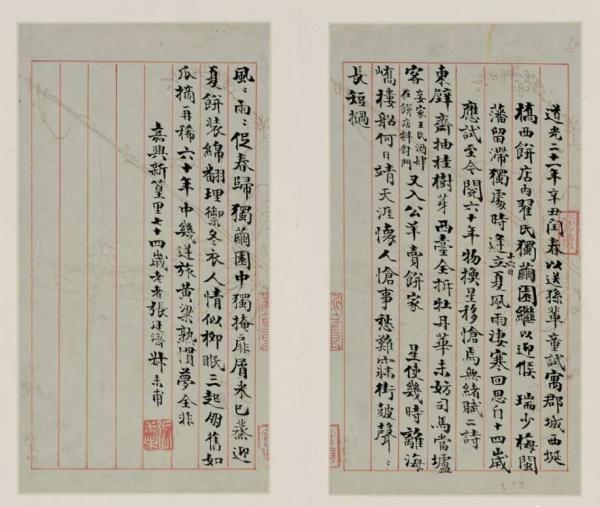 道光二十一年辛丑閏春以送孫輩童試寓郡城西埏
橋西餅店內翟氏獨蘭園繼以迎候瑞少梅閩
藩留滯獨處時逢立夏風雨淒寒回思自十四歲
應試至今閱六十年物換星移愴焉無緒賦二詩
東壁齋抽桂樹芽西臺全拆牡丹華未妨司馬當壚
客 又入公羊賣餅家 星使幾時離海
嶠樓船何日靖天涯懷人愴事愁難寐街鼓聲〻
長短撾
風〻雨〻促春歸獨蘭園中獨掩扉屑米已蒸迎
夏餅裝綿翻理禦冬衣人情似柳眠三起朋舊如
瓜摘再稀六十年中幾逆旅黃粱熟慣夢全非
嘉興新篁里七十四歲老者張廷濟叔未甫